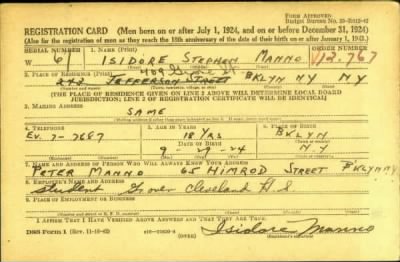 FORM APPROVED
REGISTRATION CARD (Men born on or after July 1, 1924, and on or before December 31, 1924)
(Also for the registration of men as they reach the 18th anniversary of the date of their birth on or after January 1, 1943.)
SERIAL NUMBER
1. NAME (Print)
ORDER NUMBER
W 61 ISIDORE STEPHEN MANNO 13,767
2. PLACE OF RESIDENCE (Print)
JEFFERSON STREET BKLYN NY NY
(THE PLACE OF RESIDENCE GIVEN ON LINE 2 ABOVE WILL DETERMINE LOCAL BOARD
JURISDICTION; LINE 2 OF REGISTRATION CERTIFICATE WILL BE IDENTICAL)
3. MAILING ADDRESS
SAME
4. TELEPHONE
5. AGE IN YEARS
6. PLACE OF BIRTH
EV. 7-7687
18 YRS
BKLYN
DATE OF BIRTH
9 - 29 - 24
N.Y
7. NAME AND ADDRESS OF PERSON WHO WILL ALWAYS KNOW YOUR ADDRESS
PETER MANNO 65 HIMROD STREET B'KLYN NY
8. EMPLOYER'S NAME AND ADDRESS
Student Grover Cleveland H.S
9. PLACE OF EMPLOYMENT OR BUSINESS
I AFFIRM THAT I HAVE VERIFIED ABOVE ANSWERS AND THAT THEY ARE TRUE.
DSS Form 1 (Rev. 11-16-42)
(OVER)
Isidore Manno